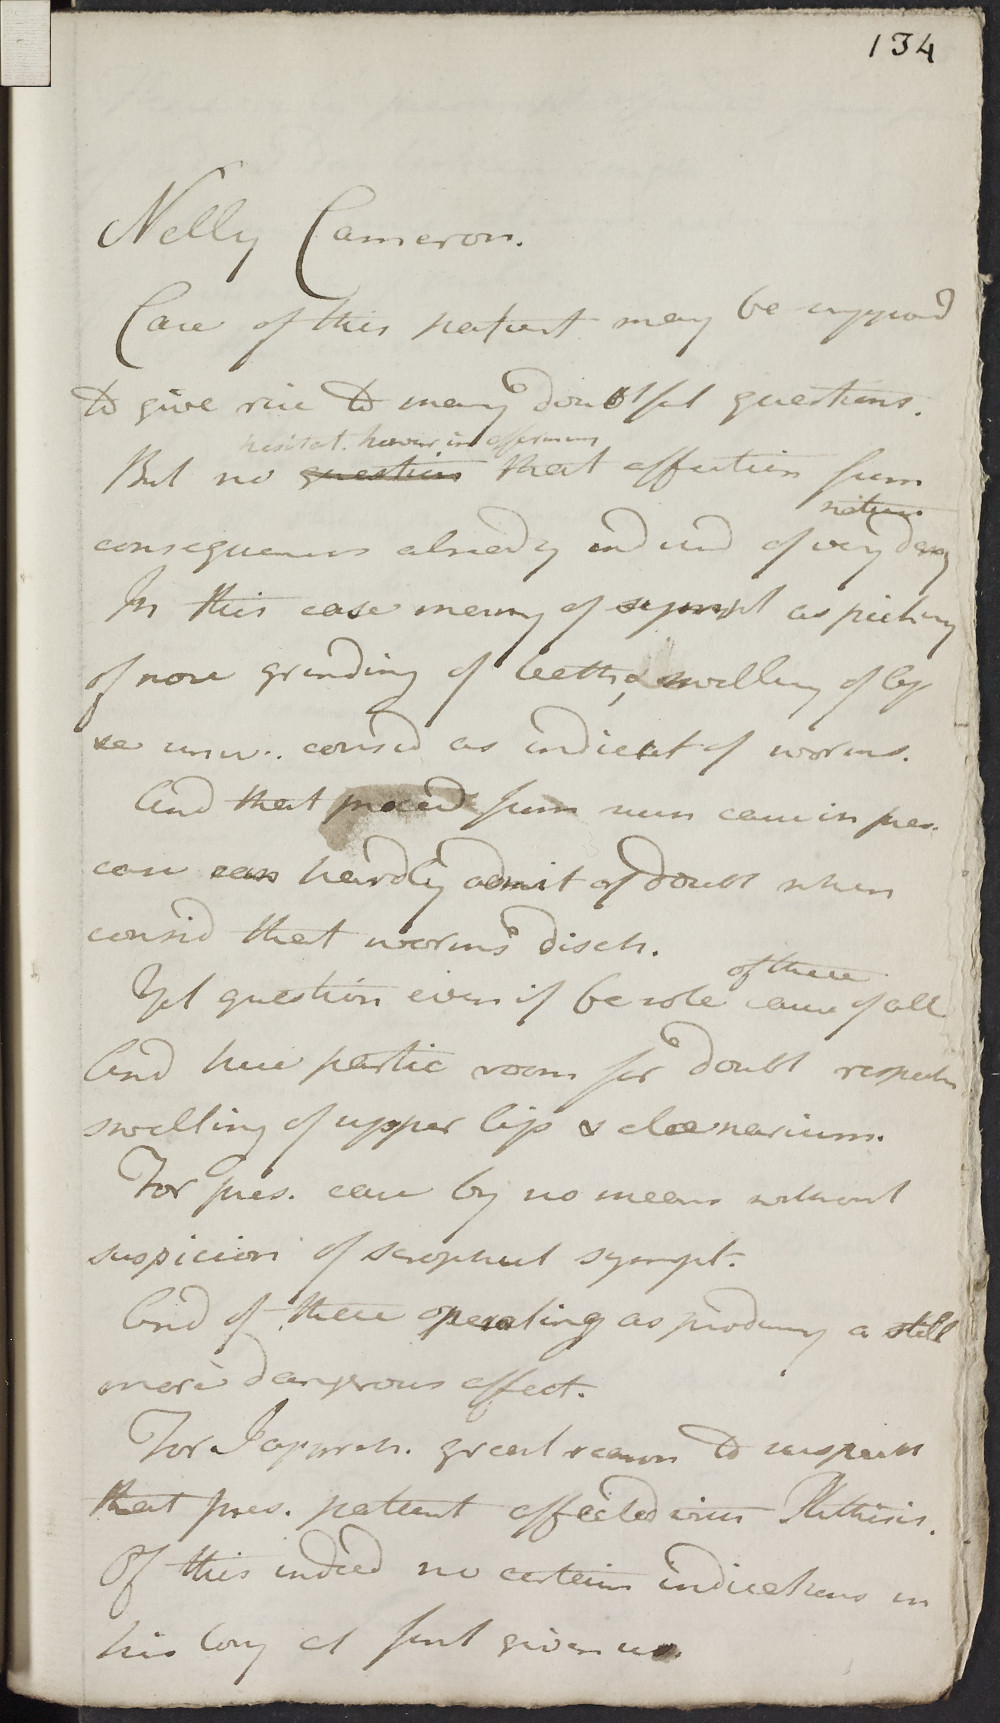 134
Nelly Cameron.
Case of this patient may be supposd
to give rise to many doubtful questions.
hesitat. however in affirming
But no question that affection from
nature
consequences already induced of very dang
In this case many of sympt as picking
of nose grinding of teeth, & swelling of lip
consid as indicat of worms.
And that proceed from some cause in pres.
case can hardly admit of doubt when
consid that worms disch.
of these
Yet question even if be sole cause of all
And here partic room for doubt respectin
swelling of upper lip & alae narium.
For pres. case by no means without
suspicion of scrophul sympt.
And of these operating as producing a still
more dangerous effect.
For I appreh. great reason to suspect
that pres. patient affected with Phthisis.
Of this indeed no certain indications in
history at first given us.